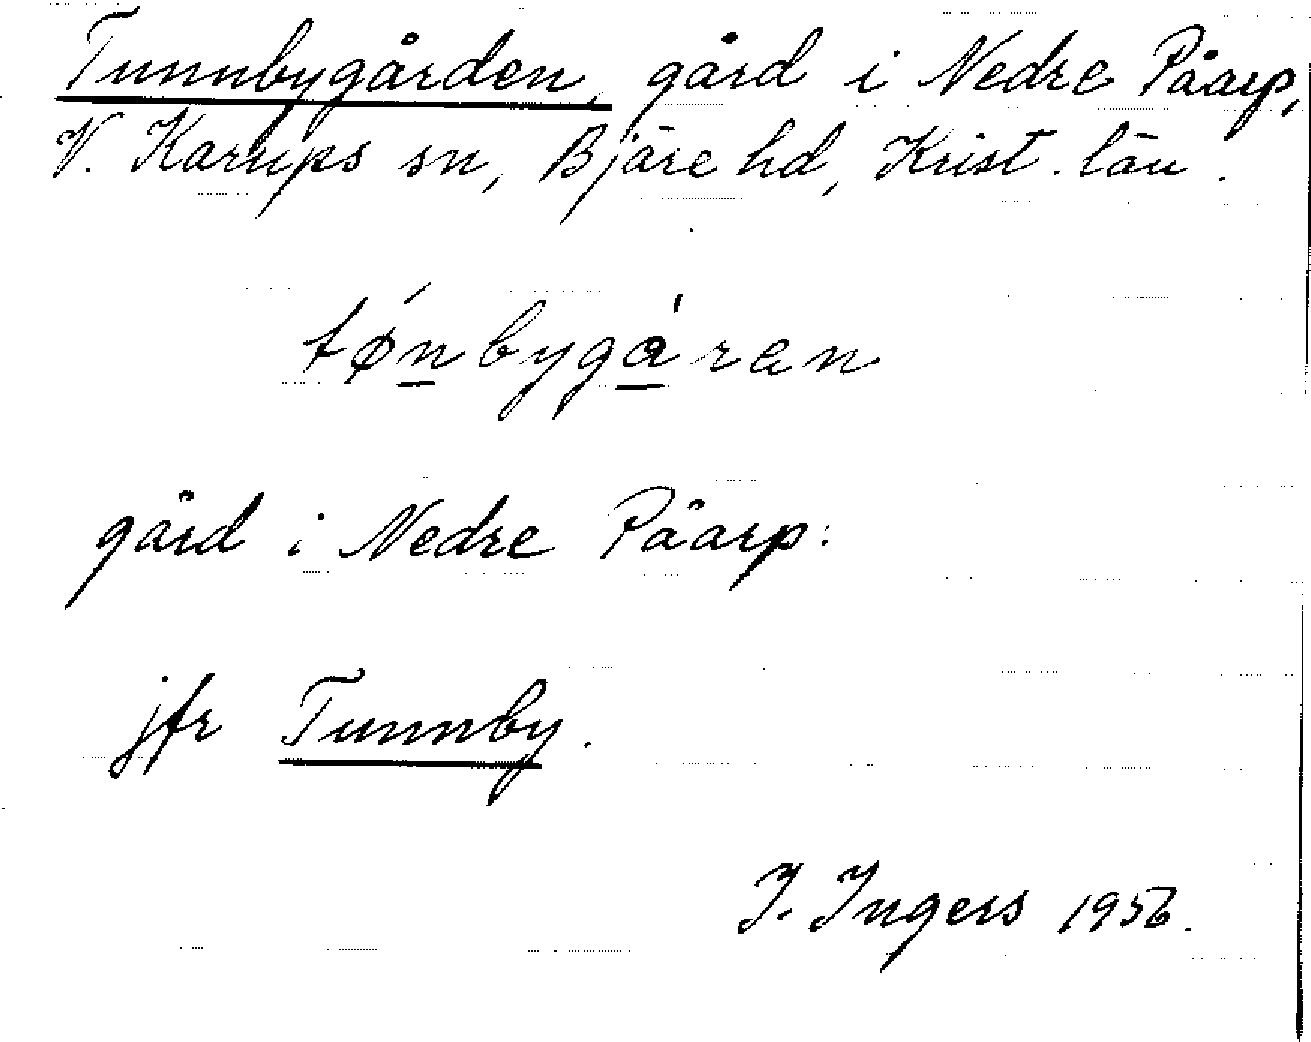 Tunnbygården, gård i Nedre Påarp,
V. Karups sn, Bjäre hd, Krist. län.
tǿnbyga̍ran
gård i Nedre Påarp:
jfr Tunnby.
I. Ingers 1956.